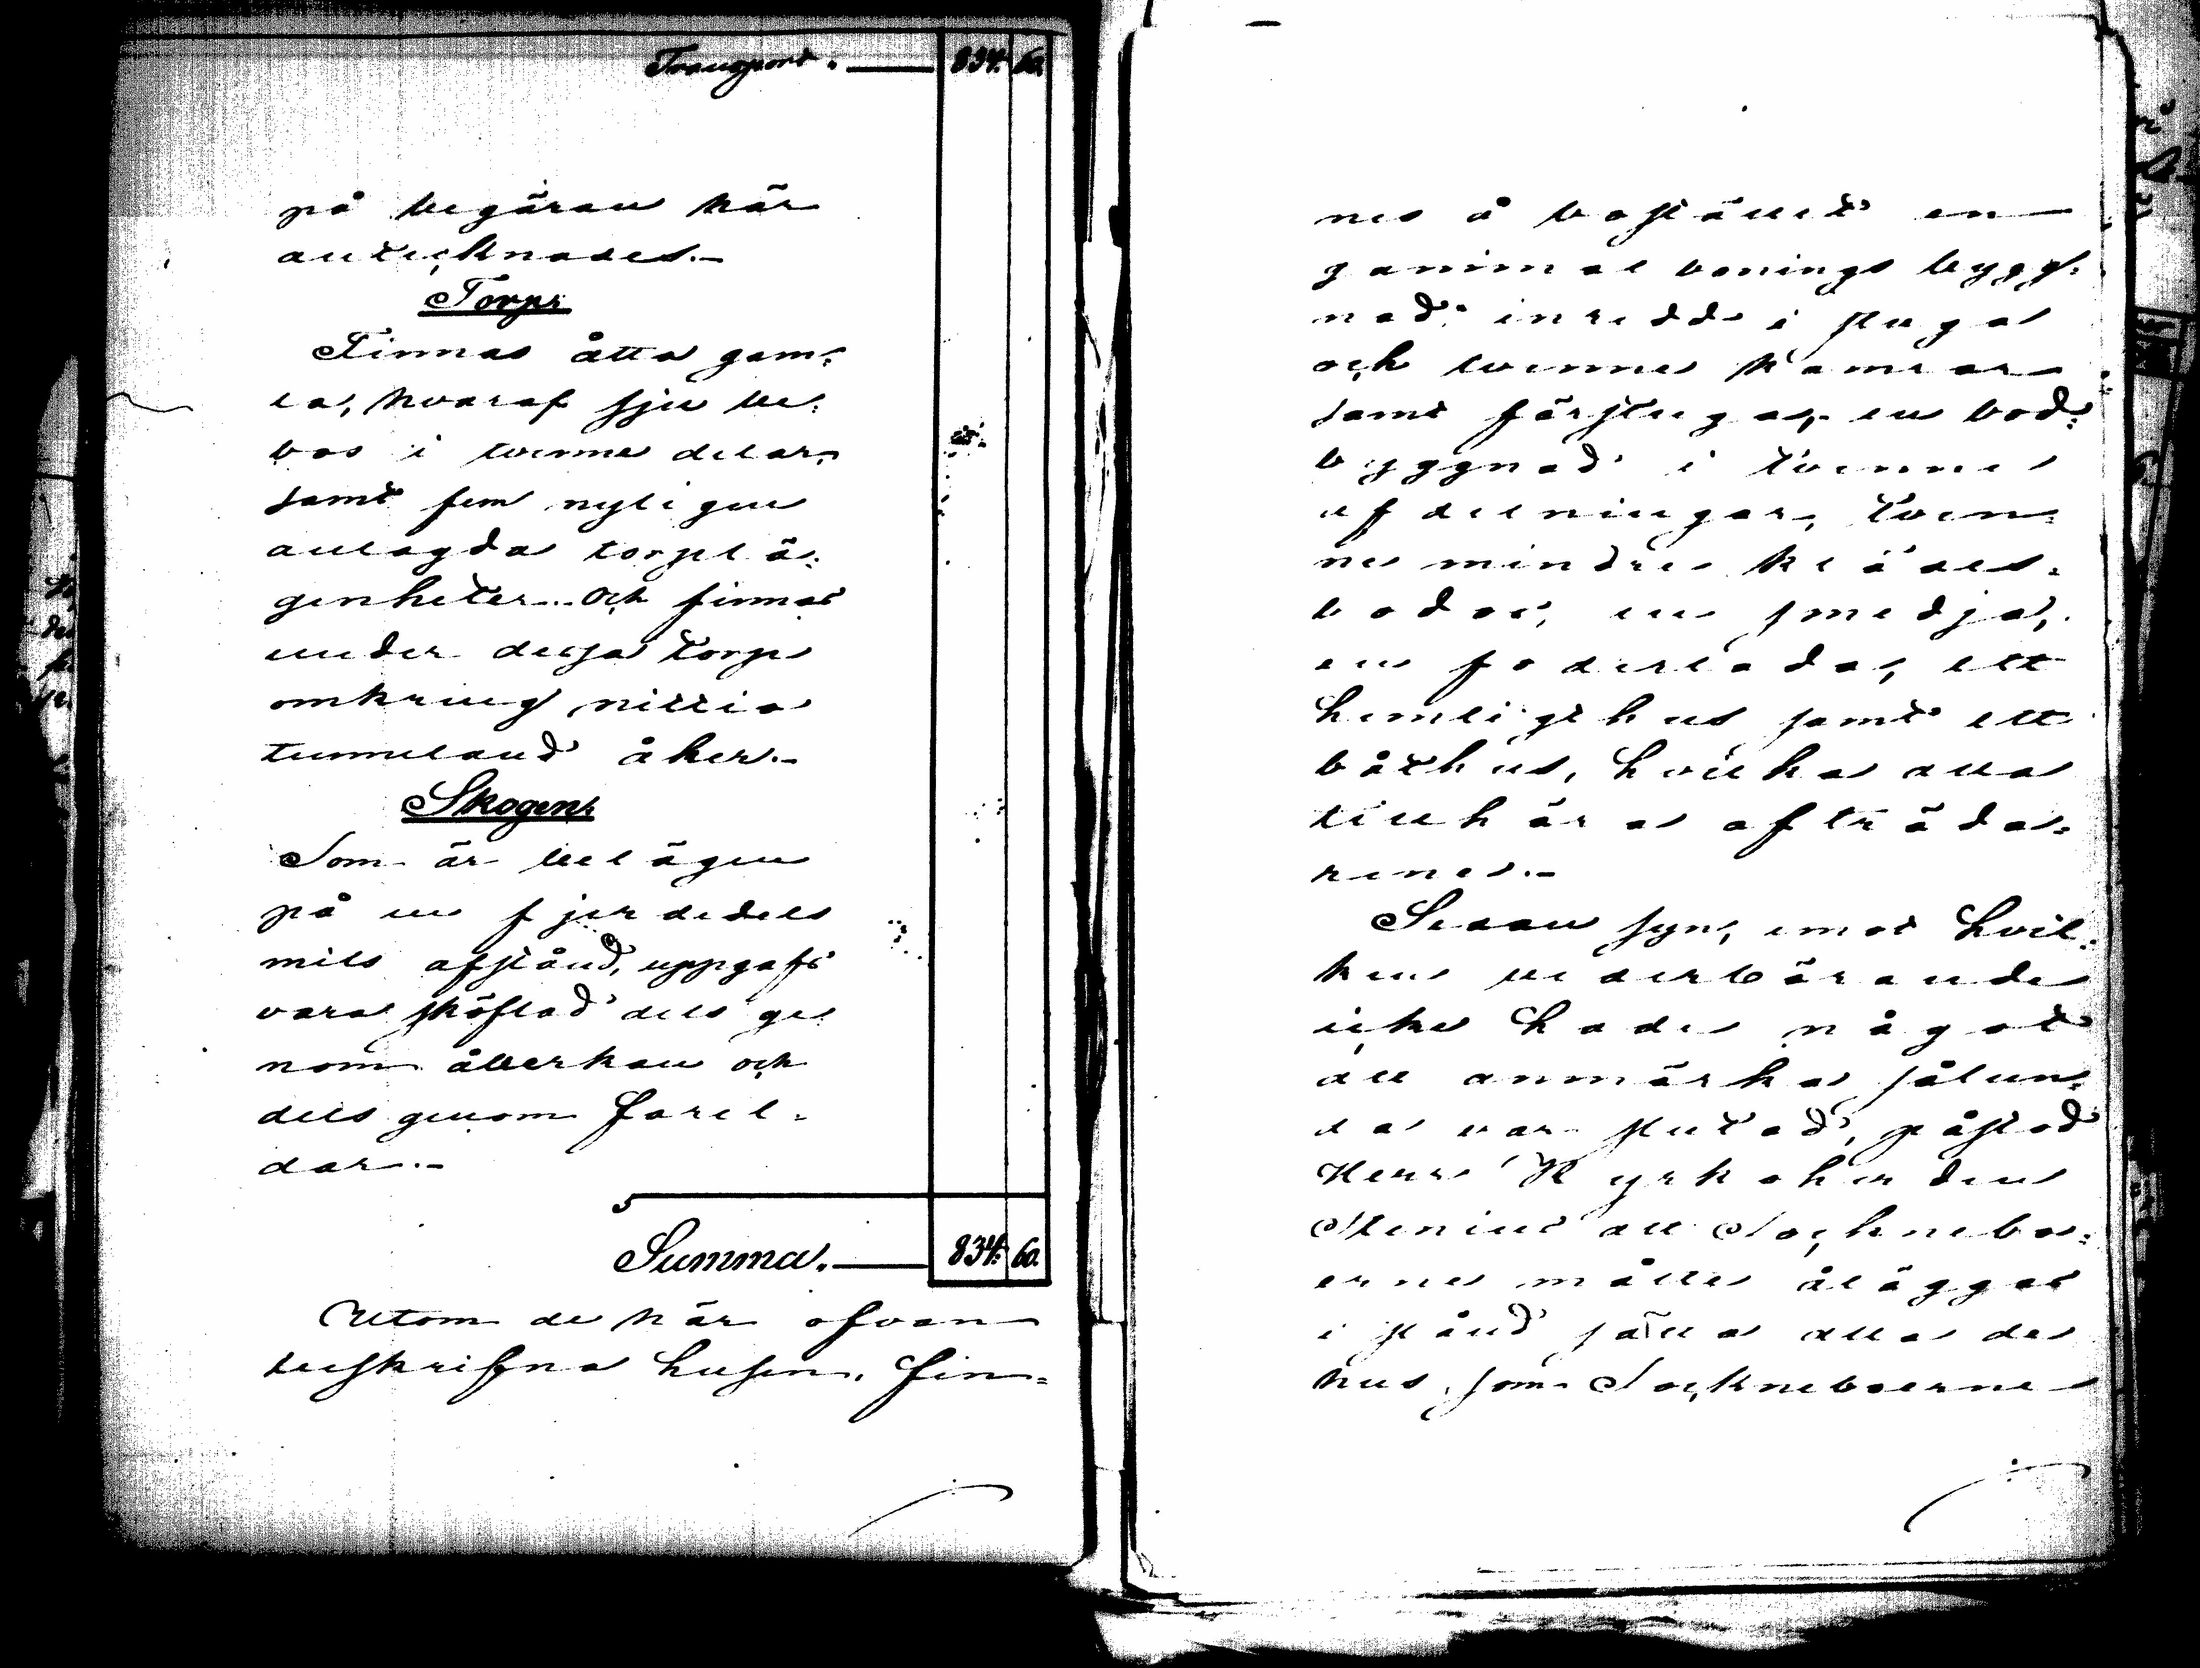 Transport. — 834. 60.
på begäran här
antecknades.-
Torp:
Finnas åtta gam-
la, hvaraf sju be-
bos i tvenne delar,
samt fem nyligen
anlagda torplä-
genheter. Och finnas
under dessa torp
omkring nittio
tunneland åker.-
Skogen:
Som är belägen
på en fjerdedels
mils afstånd, uppgafs
vara sköflad dels ge-
nom åverkan och
dels genom farel-
dar.-
Summa. — 834. 60.
Utom de här ofvan
beskrifna husen, fin-
nes å bostället en
gammal bonings bygg-
nad inredd i stuga
och tvenne kamrar
samt förstuga, en bod-
byggnad i tvenne
afdelningar, tven-
ne mindre klädes-
bodar, en smedja,
en foderlada, ett
hemligthus samt ett
båthus, hvilka alla
tillhöra afträda-
rene.-
Sedan syn, emot hvil-
ken vederbörande
icke hade något
att anmärka sålun-
da var slutad, påstod
Herr Kyrkoherden
Stenius att Socknebo-
erne måtte åläggas
i stånd sätta alla de
hus, som Sockneboerne